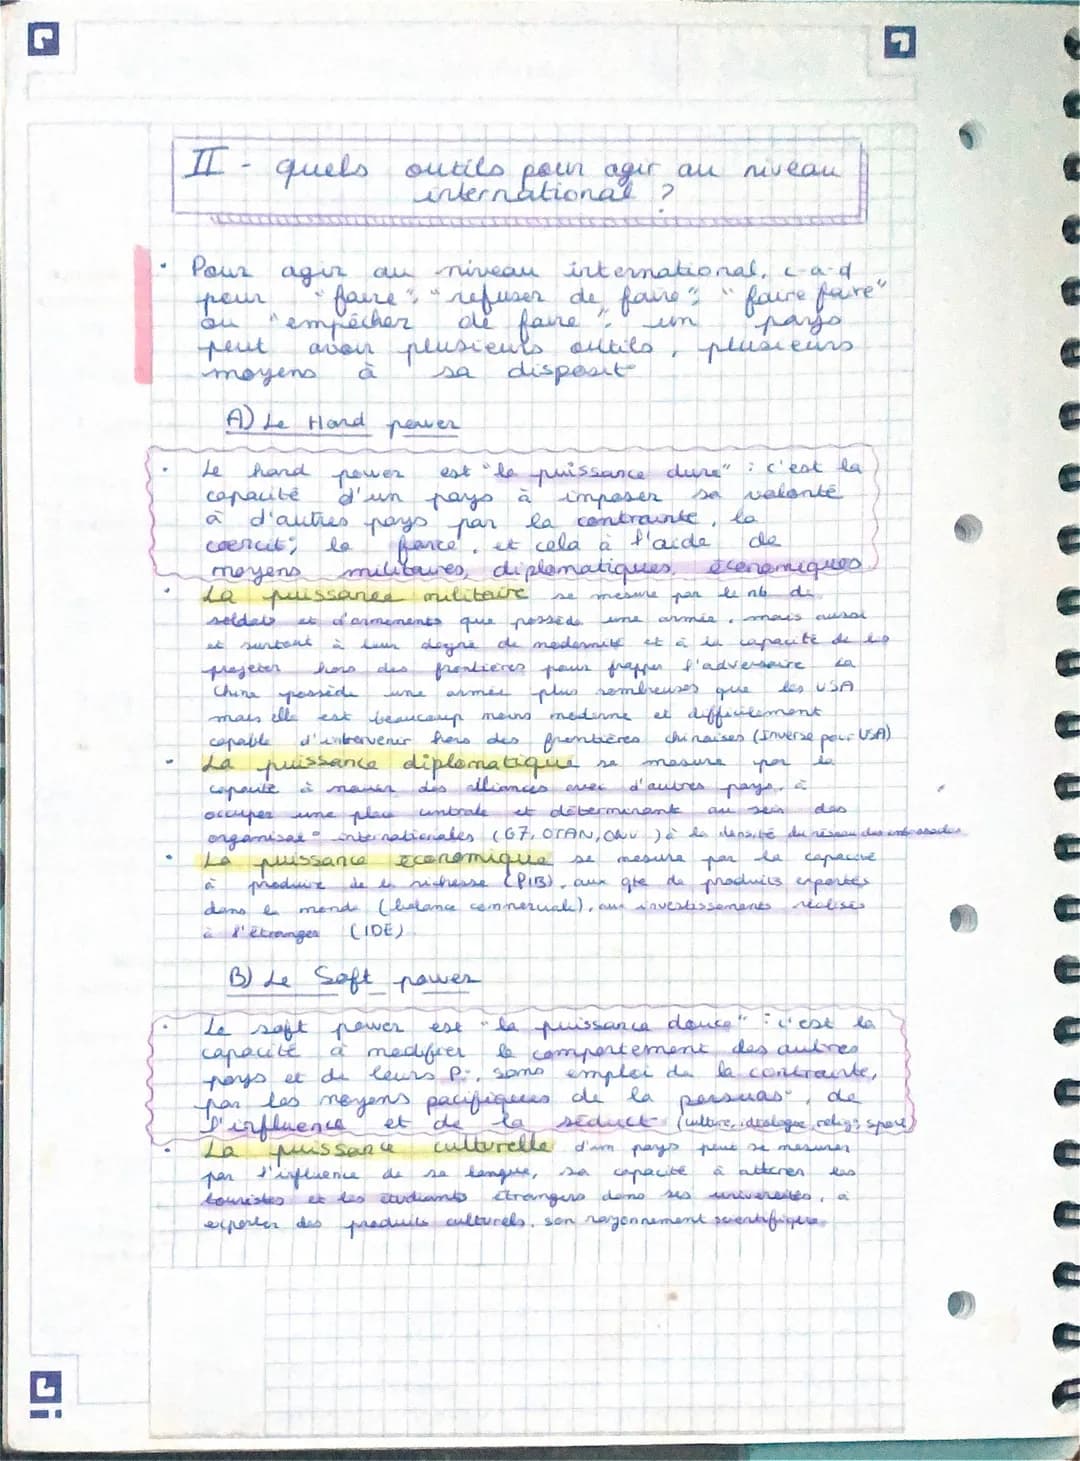 II - quels outils pour agir au niveau
international ?
• Pour agir au niveau international, c-a-d
pour "faire", "refuser de faire", "faire faire"
ou "empêcher de faire", un pays
peut avoir plusieurs outils, plusieurs
moyens à sa disposit°
A) Le Hard power
• Le hard power est "la puissance dure" : c'est la
capacité d'un pays à imposer sa volonté
à d'autres pays par la contrainte, la
coercit°, la force, et cela à l'aide de
moyens militaires, diplomatiques, économiques
• La puissance militaire se mesure par le nb de
soldats et d'armements que possède une armée, mais aussi
et surtout à leur degré de modernité et à la capacité de les
projeter hors des frontières pour frapper l'adversaire La
Chine possède une armée plus nombreuses que les USA
mais elle est beaucoup moins moderne et difficilement
capable d'intervenir hors des frontières chinoises (Inverse pour USA)
• La puissance diplomatique se mesure par la
capacité à nouer des alliances avec d'autres pays, à
occuper une place centrale et déterminante au sein des
organisat° internationales (G7, OTAN, ONU) à la densité du réseau des ambassades
• La puissance économique se mesure par la capacité
à produire de la richesse (PIB), aux qté de produits exportés
dans le monde (balance commerciale), aux investissements réalisés
à l'étranger (IDE)
B) Le Soft power
• Le soft power est "la puissance douce" : c'est la
capacité à modifier le comportement des autres
pays et de leurs P°, sans emploi de la contrainte,
par les moyens pacifiques de la persuas°, de
l'influence et de la séduct° (culture, idéologie, relig°, sport)
• La puissance culturelle d'un pays peut se mesurer
par l'influence de sa langue, sa capacité à attirer les
touristes et les étudiants étrangers dans ses universités, à
exporter des produits culturels, son rayonnement scientifique.